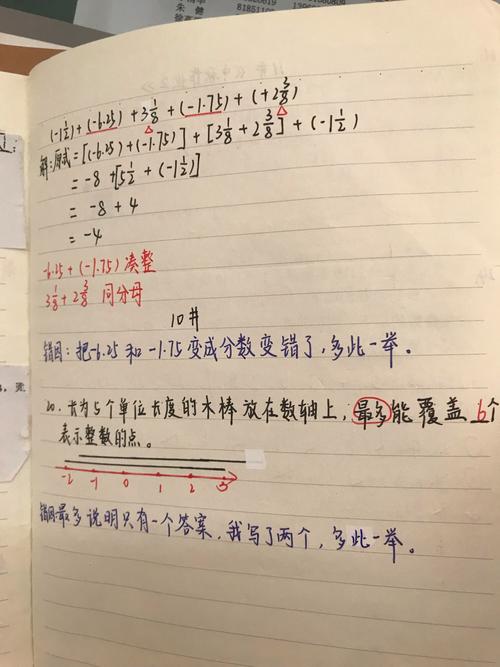 朱健
(-1½)+(-6.25)+3⅛+(-1.75)+(+2⅜)
解:原式=[(-6.25)+(-1.75)]+[3⅛+2⅜]+(-1½)
=-8+[5½+(-1½)]
=-8+4
=-4
-6.25+(-1.75)凑整
3⅛+2⅜ 同分母
10井
错因:把-6.25和-1.75变成分数变错了,多此一举。
20.长为5个单位长度的木棒放在数轴上,最多能覆盖6个
表示整数的点。
-2 -1 0 1 2 3
错因:最多说明只有一个答案,我写了两个,多此一举。